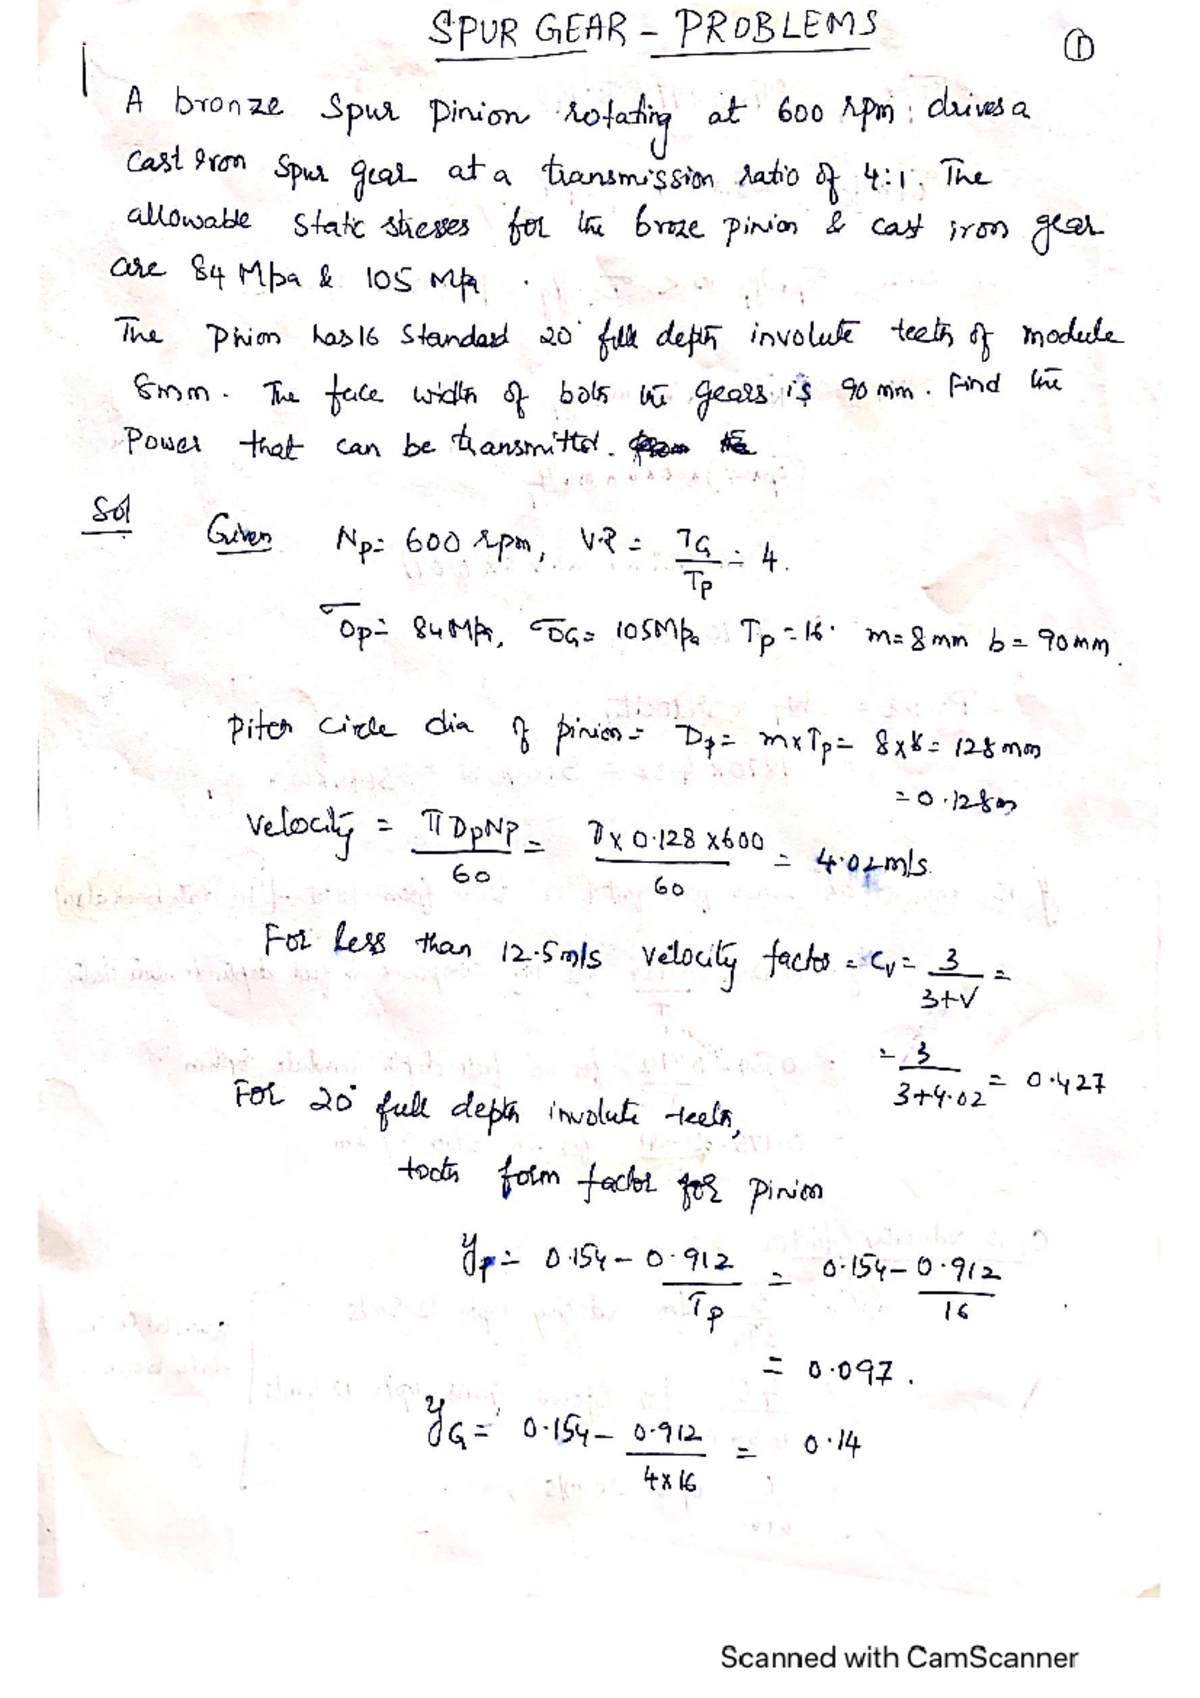 SPUR GEAR - PROBLEMS
1
A bronze Spur Pinion rotating at 600 rpm drives a
cast Iron Spur gear at a transmission ratio of 4:1. The
allowable static stresses for the broze pinion & cast iron gear
are 84 Mpa & 105 Mpa
The Pinion has 16 Standard 20° full depth involute teeth of module
8mm. The face width of both the gears is 90 mm. Find the
Power that can be transmitted.
Sol
Given Np = 600 rpm, V.R = TG/Tp = 4.
σop = 84 Mpa, σOG = 105 Mpa Tp = 16. m = 8 mm b = 90 mm.
Pitch Circle dia of pinion = Dp = m×Tp = 8×16 = 128 mm
= 0.128m
Velocity = πDpNP/60 = π×0.128×600/60 = 4.02 m/s.
For less than 12.5m/s velocity factor = Cv = 3/3+V =
= 3/3+4.02 = 0.427
For 20° full depth involute teeth,
tooth form factor for pinion
yp = 0.154 - 0.912/Tp = 0.154 - 0.912/16
= 0.097.
yG = 0.154 - 0.912/4×16 = 0.14
Scanned with CamScanner